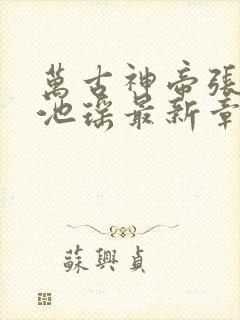 萬古神帝張
池瑤最新章
蘇興貞